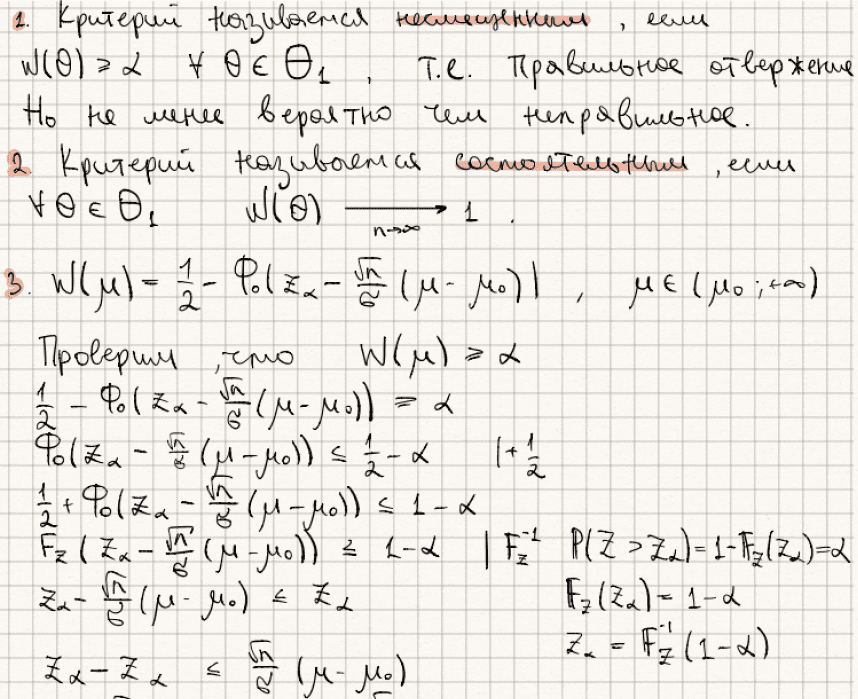 1. Критерий называется несмещенным, если
W(θ) ≥ α ∀ θ ∈ Θ₁, т.е. правильное отвержение
H₀ не менее вероятно чем неправильное.
2 Критерий называется состоятельным, если
∀ θ ∈ Θ₁ W(θ) ⟶ 1.
n→∞
3. W(μ) = 1/2 - Φ₀(z_α - √n/σ (μ - μ₀)), μ ∈ (μ₀; +∞)
Проверим, что W(μ) ≥ α
1/2 - Φ₀(z_α - √n/σ (μ - μ₀)) ≥ α
Φ₀(z_α - √n/σ (μ - μ₀)) ≤ 1/2 - α |+ 1/2
1/2 + Φ₀(z_α - √n/σ (μ - μ₀)) ≤ 1 - α
F_Z(z_α - √n/σ (μ - μ₀)) ≤ 1 - α | F_Z⁻¹ P(Z > z_α) = 1 - F_Z(z_α) = α
z_α - √n/σ (μ - μ₀) ≤ z_α F_Z(z_α) = 1 - α
z_α = F_Z⁻¹(1 - α)
z_α - z_α ≤ √n/σ (μ - μ₀)